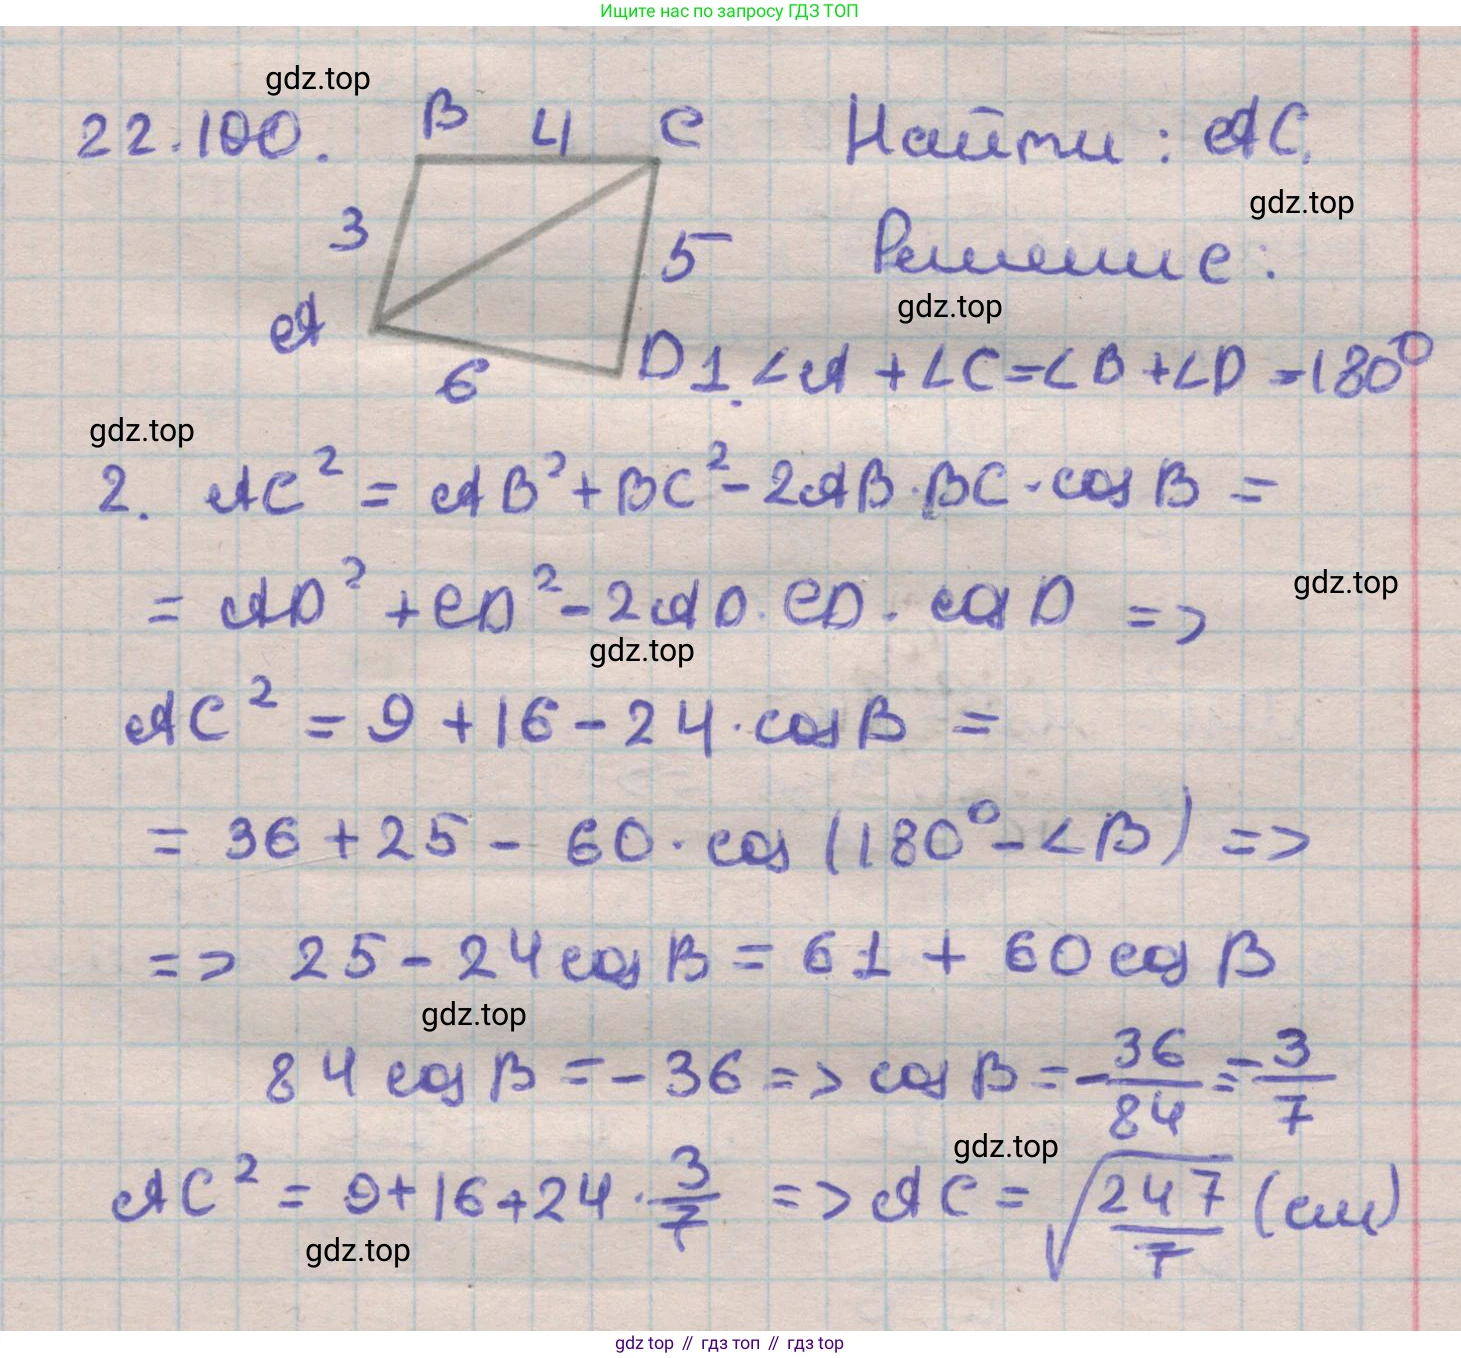 Ищите нас по запросу ГДЗ ТОП
gdz.top
22.100. B 4 C Найти: AC.
gdz.top
3 5 Решение:
gdz.top
A 6 D 1. ∠A + ∠C = ∠B + ∠D = 180°
gdz.top
2. AC² = AB² + BC² - 2AB · BC · cos B =
gdz.top
= AD² + CD² - 2AD · CD · cos D =>
gdz.top
AC² = 9 + 16 - 24 · cos B =
= 36 + 25 - 60 · cos (180° - ∠B) =>
=> 25 - 24 cos B = 61 + 60 cos B
gdz.top
84 cos B = - 36 => cos B = - 36/84 = - 3/7
gdz.top
AC² = 9 + 16 + 24 · 3/7 => AC = √247/7 (см)
gdz.top
gdz top // гдз топ // гдз top